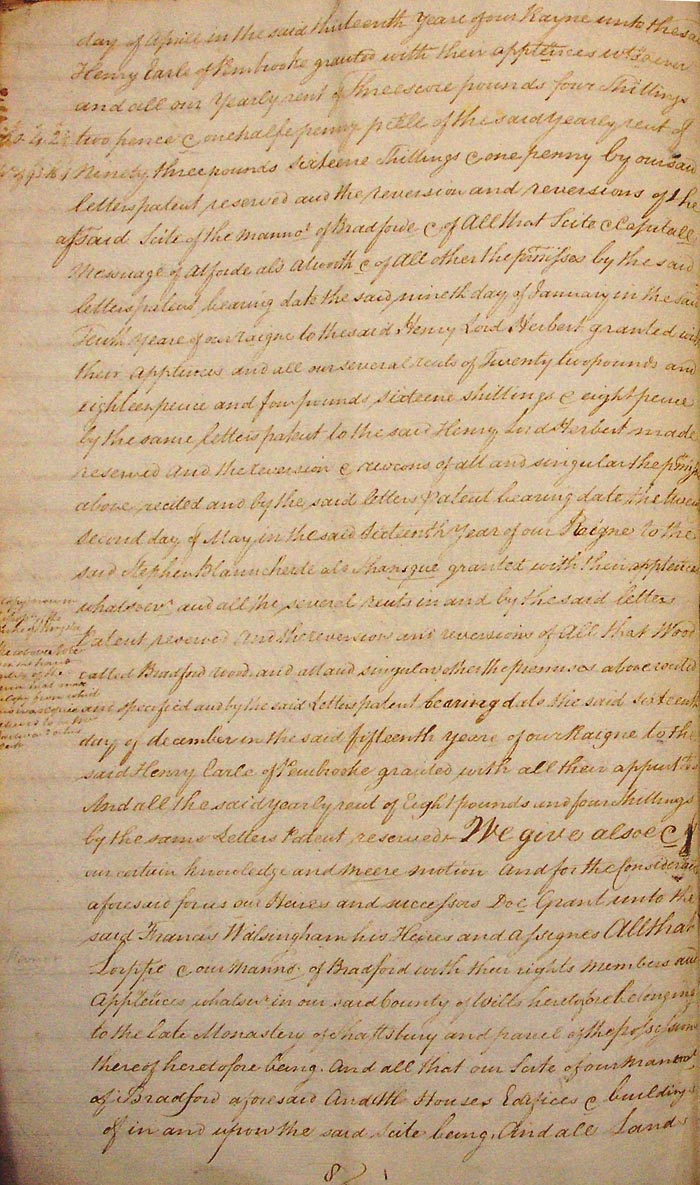 day of Aprill in the said thirteenth Yeare of our Rayne unto the said
Henry Earle of Pembrooke granted with their apptences whatsoever
and all our Yearly rent of threescore pounds four Shillings
two pence & one halfe penny pcell of the said yearly rent of
Ninety three pounds sixteene shillings & one penny by our said
letters patent reserved and the reversion and reversions of the
afsaid Scite of the mannor of Bradforde & of All that Scite & Capitall
Messuage of Atforde als Atworth & of All other the pmisses by the said
letters patent bearing date the said nineth day of January in the said
Tenth Yeare of our raigne to the said Henry Lord Herbert granted with
their Apptences and all our several rents of Twenty two pounds and
eighteen pence and four pounds sixteene shillings & eight pence
by the same letters patent to the said Henry Lord Herbert made
reserved And the reversion & revcons of all and singular the pmiss
above recited and by the said letters Patent bearing date the twenty
second day of May in the said sixteenth Year of our Raigne to the
said Stephen Blanncherde als granted with their apptences
whatsoevr and all the several rents in and by the said letters
Patent reserved And the reversion and reversions of All that Wood
called Bradford wood and all and singular other the premises above recited
and specified and by the said Letters patent bearing date the said sixteenth
day of december in the said fifteenth yeare of our Raigne to the
said Henry Earle of Pembrooke granted with all their appurtces
And all the said yearly rent of Eight pounds and four shillings
by the same Letters Patent reserved We give also &c of
our certain knowledge and meere motion And for the Consideracon
aforesaid for us our Heires and successors Doe Grant unto the
said Francis Walsingham his Heires and Assignes All that
Lorppe & our Mannor of Bradford with their rights members and
Apptences whatsevr in our said County of Wilts heretofore belonging
to the late Monastery of Shaftsbury and parcel of the possessions
thereof heretofore being. And all that our Scite of our Mannor
of Bradford aforesaid And all Houses Edifices & buildings
of in and upon the said Scite being. And all Lands
Manor
8